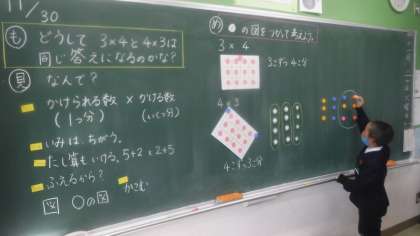 11/30
も どうして 3×4と4×3は
同じ答えになるのかな?
見 なんで?
かけられる数 × かける数
(1つ分) (いくつ分)
いみは、ちがう。
たし算もいける。5+2 2+5
ふえるから?
かこむ
図 ○の図
め ●の図をつかって考えよう。
3 × 4
3こずつ4こ分
4 × 3
4こずつ3こ分